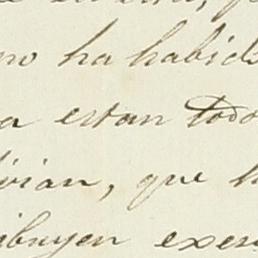 no ha habido
a estan todo
vian, que
ibuyen exer